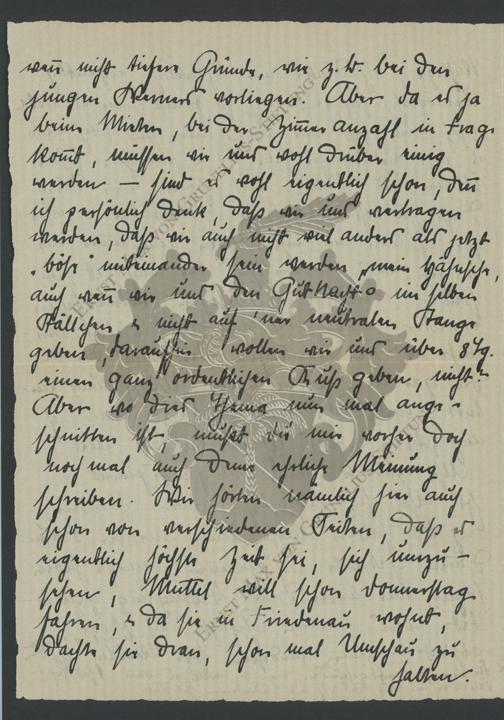 wenn nicht tiefere Gründe, wie z. B. bei den
jungen Werners vorliegen. Aber da es ja
beim Mieten, bei der Zimmeranzahl in Frage
kommt, müssen wir uns wohl drüber einig
werden – sind es wohl eigentlich schon, denn
ich persönlich denk, daß wir uns vertragen
werden, daß wir auch nicht viel anders als jetzt
„böse“ miteinander sein werden, mein
auch wenn wir uns den Gut Nacht im selben
Ställchen & nicht auf 'ner neutralen Stange
geben, daraufhin wollen wir uns über 8 Tg.
einen ganz ordentlichen Kuß geben, nicht?
Aber wo dies Thema nun mal ange-
schnitten ist, mußt du mir vorher doch
noch mal auch Deine ehrliche Meinung
schreiben. Wir hörten nämlich hier auch
schon von verschiedenen Seiten, daß es
eigentlich höchste Zeit sei, sich umzu-
sehen, Muttel will schon Donnerstag
fahren, & da sie in Friedenau wohnt,
dachte sie dran, schon mal Umschau zu
halten.